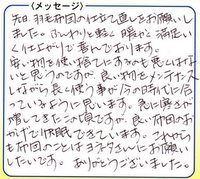 〈メッセージ〉
先日、羽毛布団の仕立て直しをお願いし
ました。ふんわりと軽く暖かく満足い
く仕上がりで喜んでおります。
安い物を使い捨てにするのも良くはな
いと思うのですが、良い物をメンテナンス
しながら長く使う事が今の時代に合
っているように思います。更に寒さが
増してきたこの頃ですが、良い布団のお
かげで快眠できています。これから
も布団のことはヨシタさんにお願い
したいです。ありがとうございました。